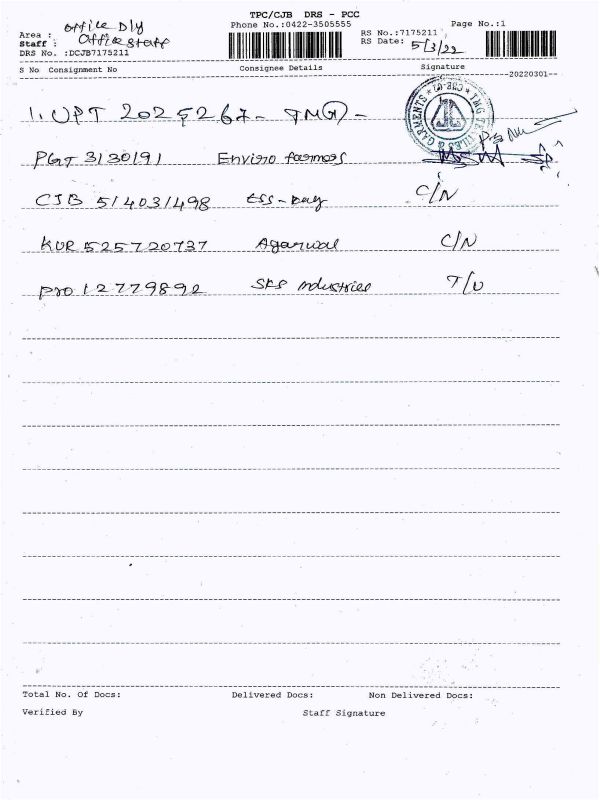 TPC/CJB DRS - PCC
Phone No.:0422-3505555 Page No.:1
Area : Office Dly RS No.:7175211
Staff : Office staff RS Date: 5/3/22
DRS No. :DCJB7175211
S No Consignment No Consignee Details Signature
--20220301--
1. UPT 202 267 - TMG -
TMG TEXTILES & GARMENTS
PGT 3130191 Enviro farmers
CJB 514031498 ESS-Bay C/N
KUR 525720737 Agarwal C/N
PRO 12779892 SKS Industries T/U
Total No. Of Docs: Delivered Docs: Non Delivered Docs:
Verified By Staff Signature